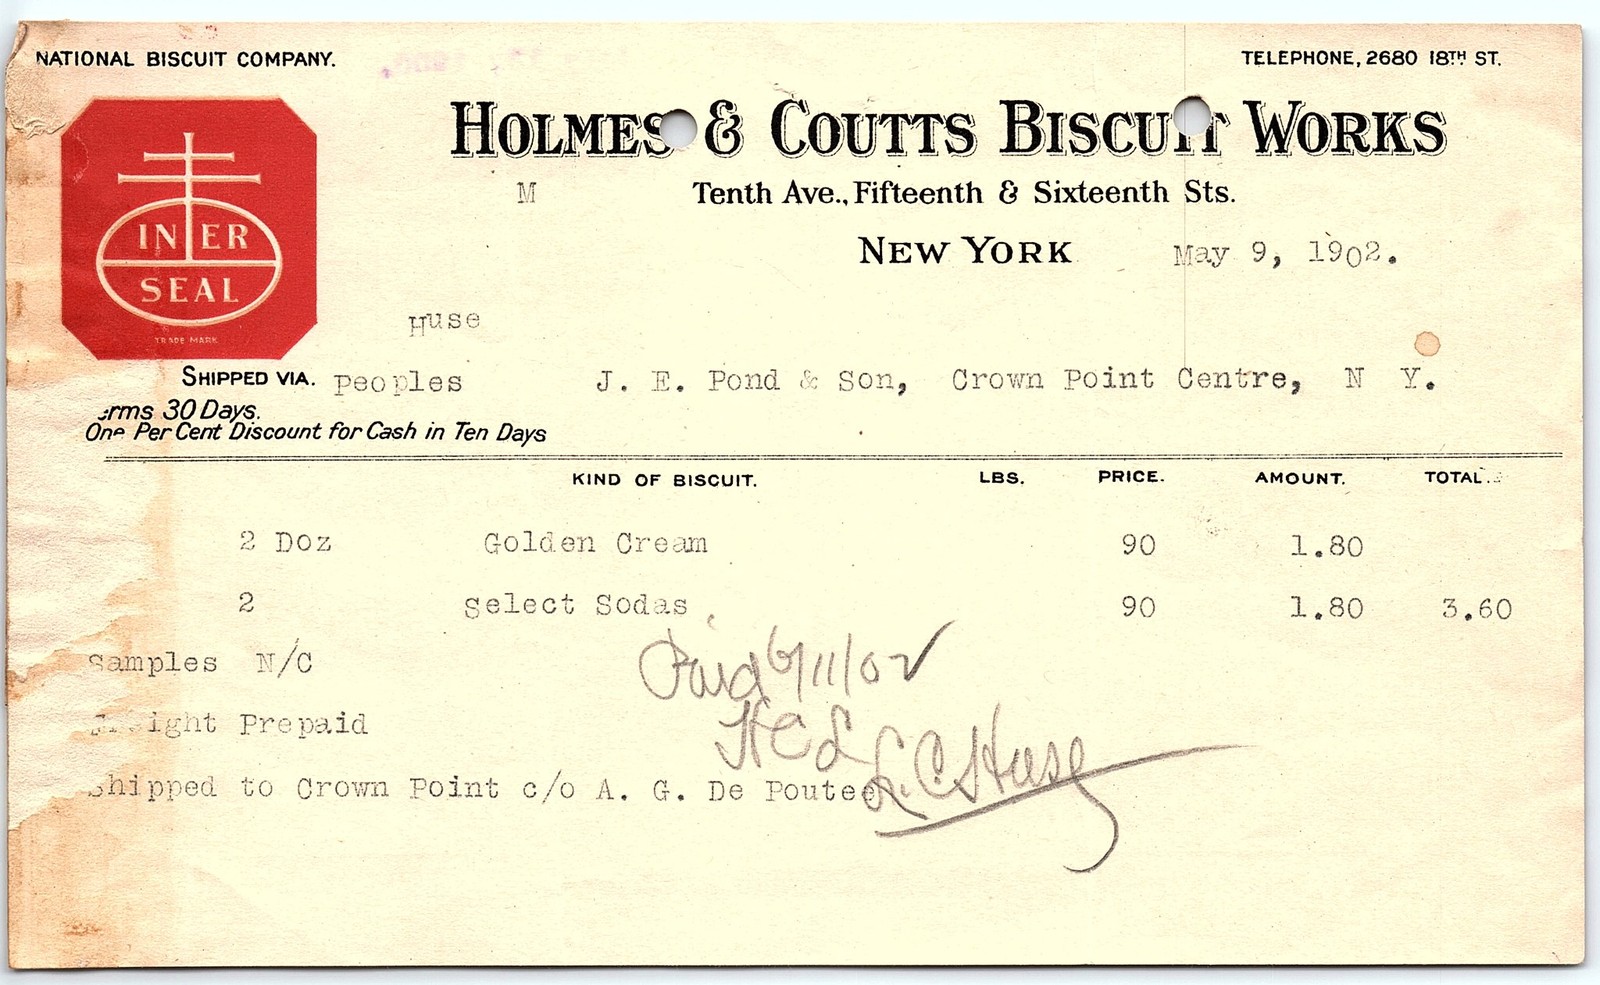 NATIONAL BISCUIT COMPANY.
TELEPHONE, 2680 18TH ST.
HOLMES & COUTTS BISCUIT WORKS
M
Tenth Ave., Fifteenth & Sixteenth Sts.
NEW YORK
May 9, 1902.
INER
SEAL
TRADE MARK
Huse
SHIPPED VIA. Peoples
J. E. Pond & Son, Crown Point Centre, N Y.
erms 30 Days.
One Per Cent Discount for Cash in Ten Days
KIND OF BISCUIT. LBS. PRICE. AMOUNT. TOTAL.
2 Doz Golden Cream 90 1.80
2 Select Sodas 90 1.80 3.60
Samples N/C
Paid 6/11/02
Freight Prepaid
L. C. Huse
Shipped to Crown Point c/o A. G. De Poutee